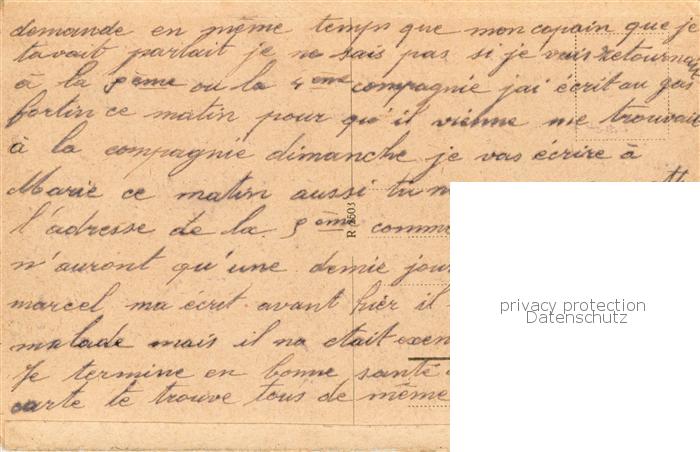 demande en même temp que mon copain que je
tavait parlait je ne sais pas si je vais retournait
à la 3ème ou la 4ème compagnie jai écrit au gas
fortin ce matin pour qu'il vienne me trouvait
à la compagnie dimanche je vas écrire à
Marie ce matin aussi tu
l'adresse de la 3ème comme
R 1503
n'auront qu'une demie jour
marcel ma écrit avant hier il
malade mais il na etait exen
Je termine en bonne santé
carte te trouve tous de même
privacy protection
Datenschutz